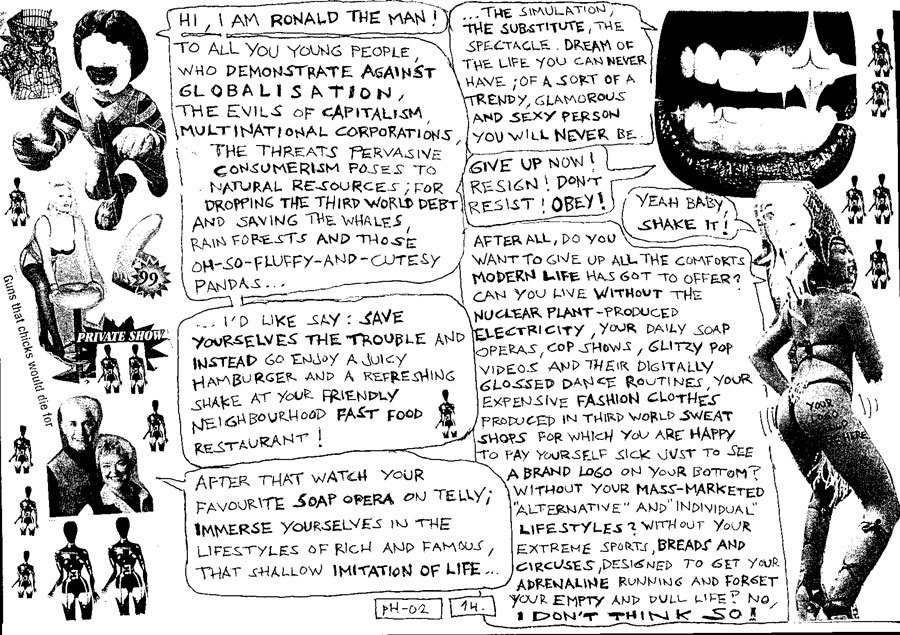 HI, I AM RONALD THE MAN!
TO ALL YOU YOUNG PEOPLE,
WHO DEMONSTRATE AGAINST
GLOBALISATION,
THE EVILS OF CAPITALISM,
MULTINATIONAL CORPORATIONS,
THE THREATS PERVASIVE
CONSUMERISM POSES TO
NATURAL RESOURCES; FOR
DROPPING THE THIRD WORLD DEBT
AND SAVING THE WHALES,
RAIN FORESTS AND THOSE
OH-SO-FLUFFY-AND-CUTESY
PANDAS...
... I'D LIKE SAY: SAVE
YOURSELVES THE TROUBLE AND
INSTEAD GO ENJOY A JUICY
HAMBURGER AND A REFRESHING
SHAKE AT YOUR FRIENDLY
NEIGHBOURHOOD FAST FOOD
RESTAURANT!
AFTER THAT WATCH YOUR
FAVOURITE SOAP OPERA ON TELLY;
IMMERSE YOURSELVES IN THE
LIFESTYLES OF RICH AND FAMOUS,
THAT SHALLOW IMITATION OF LIFE...
...THE SIMULATION,
THE SUBSTITUTE, THE
SPECTACLE. DREAM OF
THE LIFE YOU CAN NEVER
HAVE; OF A SORT OF A
TRENDY, GLAMOROUS
AND SEXY PERSON
YOU WILL NEVER BE.
GIVE UP NOW!
RESIGN! DON'T
RESIST! OBEY!
YEAH BABY,
SHAKE IT!
AFTER ALL, DO YOU
WANT TO GIVE UP ALL THE COMFORTS
MODERN LIFE HAS GOT TO OFFER?
CAN YOU LIVE WITHOUT THE
NUCLEAR PLANT-PRODUCED
ELECTRICITY, YOUR DAILY SOAP
OPERAS, COP SHOWS, GLITZY POP
VIDEOS AND THEIR DIGITALLY
GLOSSED DANCE ROUTINES, YOUR
EXPENSIVE FASHION CLOTHES
PRODUCED IN THIRD WORLD SWEAT
SHOPS FOR WHICH YOU ARE HAPPY
TO PAY YOURSELF SICK JUST TO SEE
A BRAND LOGO ON YOUR BOTTOM?
WITHOUT YOUR MASS-MARKETED
"ALTERNATIVE" AND "INDIVIDUAL"
LIFESTYLES? WITHOUT YOUR
EXTREME SPORTS, BREADS AND
CIRCUSES, DESIGNED TO GET YOUR
ADRENALINE RUNNING AND FORGET
YOUR EMPTY AND DULL LIFE? NO,
I DON'T THINK SO!
YOUR
LOGO
HERE
99
PRIVATE SHOW
Guns that chicks would die for
PH-02
14.